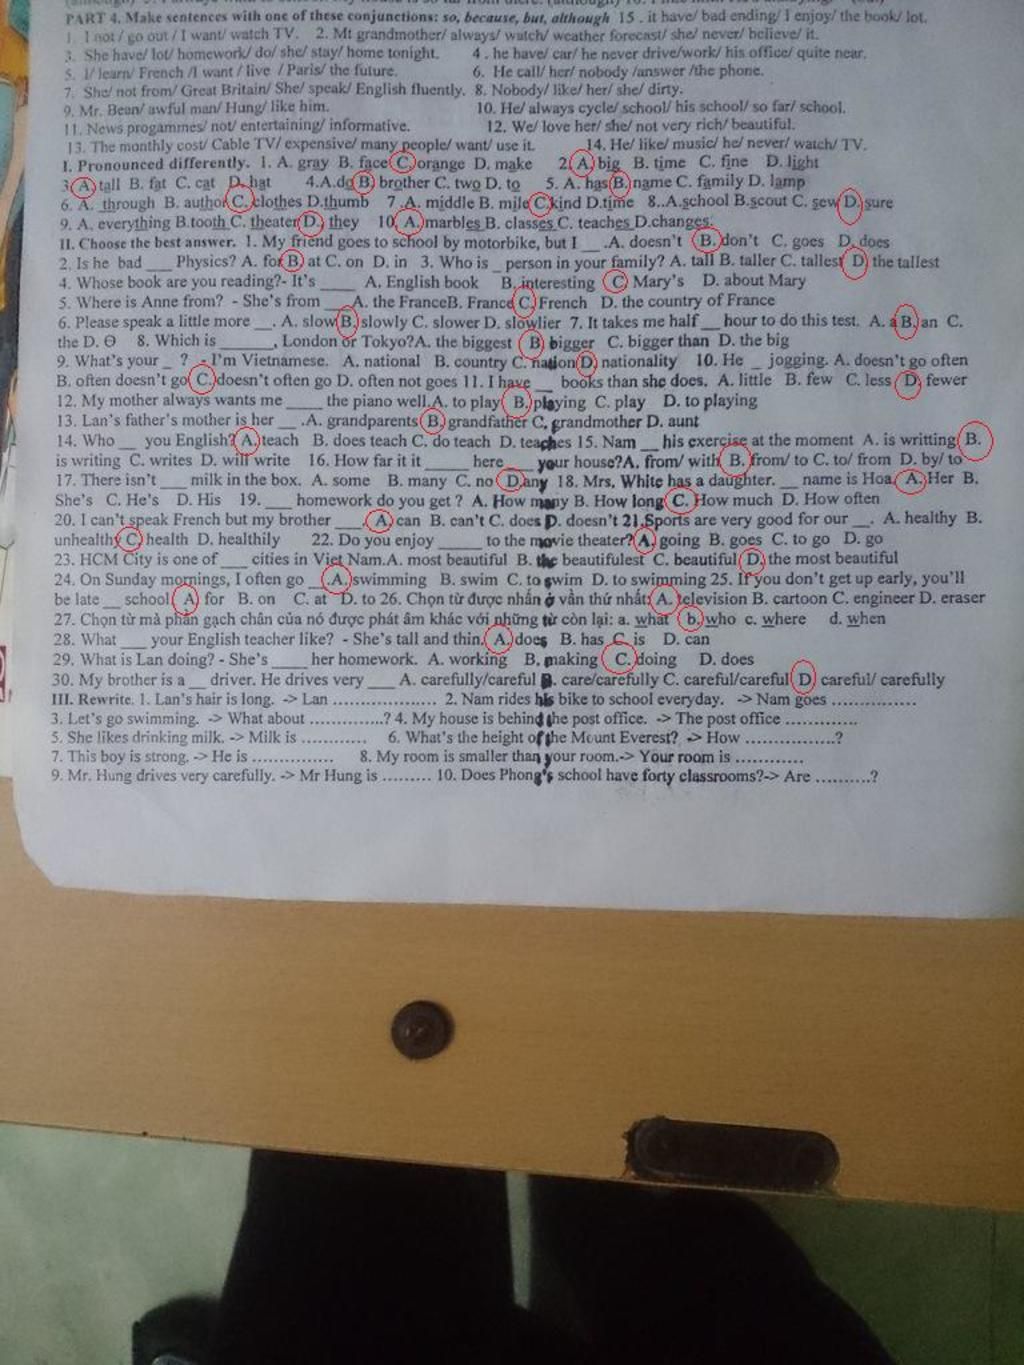 PART 4. Make sentences with one of these conjunctions: so, because, but, although 15 . it have/ bad ending/ I enjoy/ the book/ lot.
1. I not / go out / I want/ watch TV. 2. Mt grandmother/ always/ watch/ weather forecast/ she/ never/ believe/ it.
3. She have/ lot/ homework/ do/ she/ stay/ home tonight. 4 . he have/ car/ he never drive/work/ his office/ quite near.
5. I/ learn/ French /I want / live / Paris/ the future. 6. He call/ her/ nobody /answer /the phone.
7. She/ not from/ Great Britain/ She/ speak/ English fluently. 8. Nobody/ like/ her/ she/ dirty.
9. Mr. Bean/ awful man/ Hung/ like him. 10. He/ always cycle/ school/ his school/ so far/ school.
11. News progammes/ not/ entertaining/ informative. 12. We/ love her/ she/ not very rich/ beautiful.
13. The monthly cost/ Cable TV/ expensive/ many people/ want/ use it. 14. He/ like/ music/ he/ never/ watch/ TV.
I. Pronounced differently. 1. A. gray B. face C. orange D. make 2. A. big B. time C. fine D. light
3. A. tall B. fat C. cat D. hat 4.A.do B. brother C. two D. to 5. A. has B. name C. family D. lamp
6. A. through B. author C. clothes D.thumb 7 .A. middle B. mile C.kind D.time 8..A.school B.scout C. sew D. sure
9. A. everything B.tooth C. theater D. they 10. A. marbles B. classes C. teaches D.changes.
II. Choose the best answer. 1. My friend goes to school by motorbike, but I __ .A. doesn't B. don't C. goes D. does
2. Is he bad ___ Physics? A. for B. at C. on D. in 3. Who is _ person in your family? A. tall B. taller C. tallest D. the tallest
4. Whose book are you reading?- It's ____ A. English book B. interesting C. Mary's D. about Mary
5. Where is Anne from? - She's from ___ A. the FranceB. France C. French D. the country of France
6. Please speak a little more __. A. slow B. slowly C. slower D. slowlier 7. It takes me half __ hour to do this test. A. a B. an C.
the D. Ө 8. Which is ______, London or Tokyo?A. the biggest B. bigger C. bigger than D. the big
9. What's your _ ? - I'm Vietnamese. A. national B. country C. nation D. nationality 10. He _ jogging. A. doesn't go often
B. often doesn't go C. doesn't often go D. often not goes 11. I have __ books than she does. A. little B. few C. less D. fewer
12. My mother always wants me ____ the piano well.A. to play B. playing C. play D. to playing
13. Lan's father's mother is her __ .A. grandparents B. grandfather C. grandmother D. aunt
14. Who __ you English? A. teach B. does teach C. do teach D. teaches 15. Nam __ his exercise at the moment A. is writting B.
is writing C. writes D. will write 16. How far it it _____ here ____ your house?A. from/ with B. from/ to C. to/ from D. by/ to
17. There isn't ___ milk in the box. A. some B. many C. no D.any 18. Mrs, White has a daughter. __ name is Hoa. A. Her B.
She's C. He's D. His 19. ___ homework do you get ? A. How many B. How long C. How much D. How often
20. I can't speak French but my brother ___. A. can B. can't C. does D. doesn't 21.Sports are very good for our __. A. healthy B.
unhealthy C. health D. healthily 22. Do you enjoy _____ to the movie theater? A. going B. goes C. to go D. go
23. HCM City is one of ___ cities in Viet Nam.A. most beautiful B. the beautifulest C. beautiful D. the most beautiful
24. On Sunday mornings, I often go __.A. swimming B. swim C. to swim D. to swimming 25. If you don't get up early, you'll
be late __ school. A. for B. on C. at D. to 26. Chọn từ được nhấn ở vần thứ nhất: A. television B. cartoon C. engineer D. eraser
27. Chọn từ mà phần gạch chân của nó được phát âm khác với những từ còn lại: a. what b. who c. where d. when
28. What ___ your English teacher like? - She's tall and thin. A. does B. has C. is D. can
29. What is Lan doing? - She's ____ her homework. A. working B. making C. doing D. does
30. My brother is a __ driver. He drives very ___ A. carefully/careful B. care/carefully C. careful/careful D careful/ carefully
III. Rewrite. 1. Lan's hair is long. -> Lan .................... 2. Nam rides his bike to school everyday. -> Nam goes ................
3. Let's go swimming. -> What about ..............? 4. My house is behind the post office. -> The post office ..............
5. She likes drinking milk. -> Milk is ............ 6. What's the height of the Mount Everest? -> How .................?
7. This boy is strong. -> He is ............... 8. My room is smaller than your room.-> Your room is .............
9. Mr. Hung drives very carefully. -> Mr Hung is ......... 10. Does Phong's school have forty classrooms?-> Are ..........?